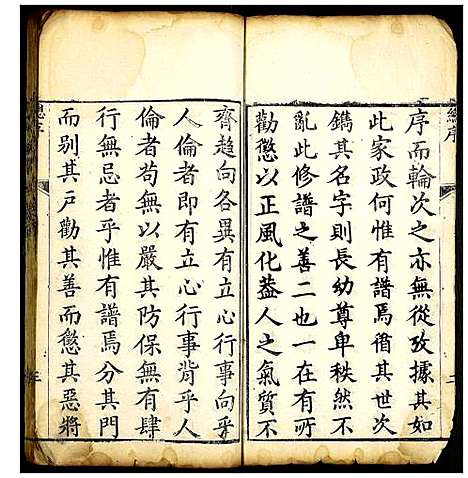 序而輪次之亦無從攷據其如
此家政何惟有譜焉循其世次
鐫其名字則長幼尊卑秩然不
亂此修譜之善二也一在有所
勸懲以正風化葢人之氣質不
齊趨向各異有立心行事向乎
人倫者即有立心行事背乎人
倫者苟無以嚴其防保無有肆
行無忌者乎惟有譜焉分其門
而别其戸勸其善而懲其惡將